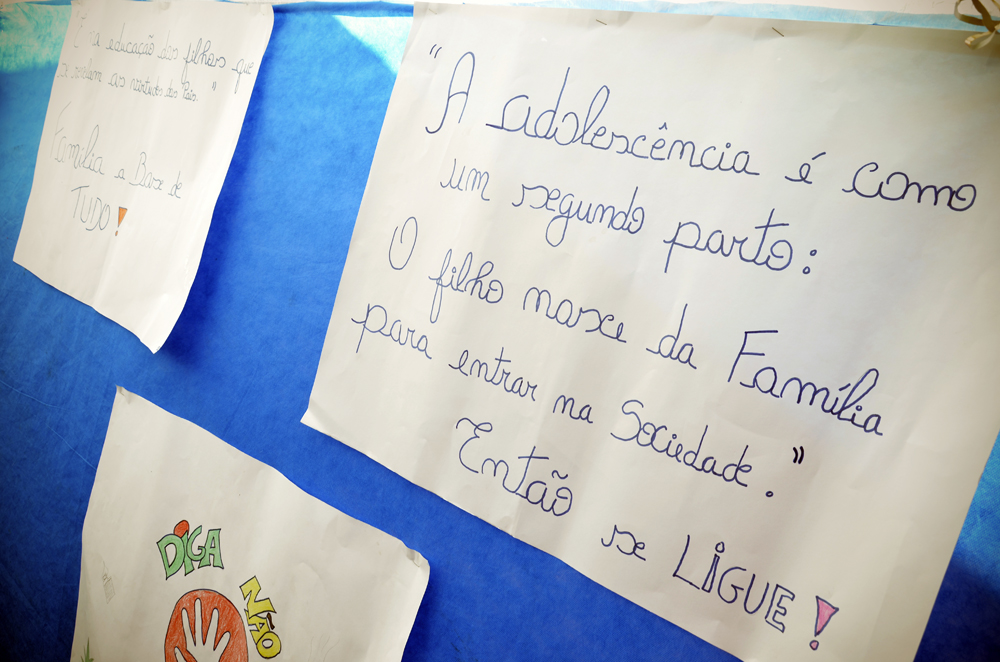 É na educação dos filhos que
se revelam as virtudes dos Pais."
Família a Base de
TUDO!
"A adolescência é como
um segundo parto:
O filho nasce da Família
para entrar na Sociedade."
Então
se LIGUE!
DIGA
NÃO